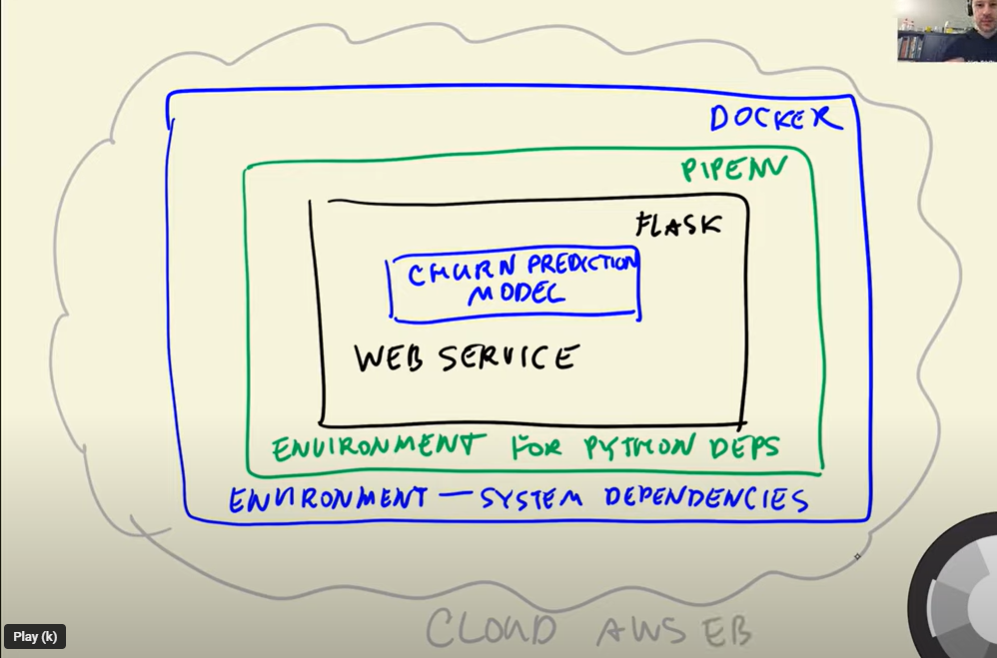 DOCKER
PIPENV
FLASK
CHURN PREDICTION
MODEL
WEB SERVICE
ENVIRONMENT FOR PYTHON DEPS
ENVIRONMENT — SYSTEM DEPENDENCIES
CLOUD AWS EB
Play (k)